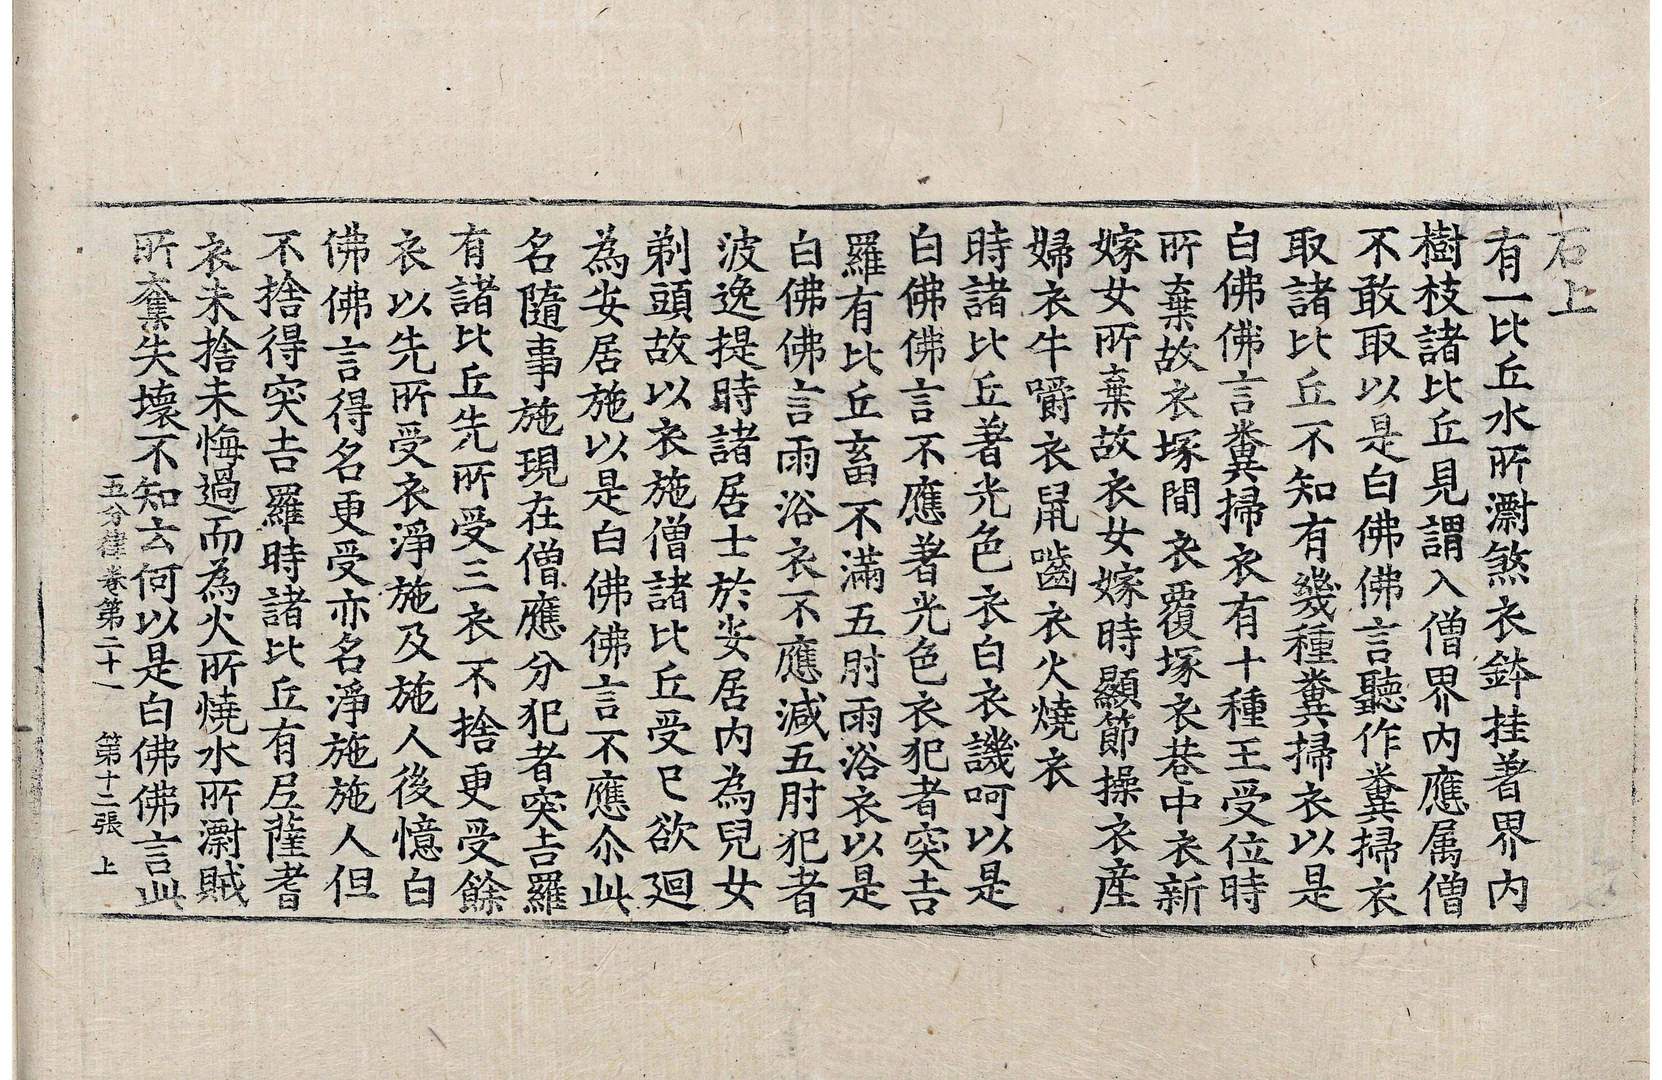 石上
有一比丘水所漂煞衣鉢挂著界內
樹枝諸比丘見謂入僧界內應属僧
不敢取以是白佛佛言聽作糞掃衣
取諸比丘不知有幾種糞掃衣以是
白佛佛言糞掃衣有十種王受位時
所棄故衣塚間衣覆塚衣巷中衣新
嫁女所棄故衣女嫁時顯節操衣產
婦衣牛嚼衣鼠嚙衣火燒衣
時諸比丘著光色衣白衣譏呵以是
白佛佛言不應著光色衣犯者突吉
羅有比丘畜不滿五肘雨浴衣以是
白佛佛言雨浴衣不應減五肘犯者
波逸提時諸居士於安居內為兒女
剃頭故以衣施僧諸比丘受已欲迴
為安居施以是白佛佛言不應尒此
名隨事施現在僧應分犯者突吉羅
有諸比丘先所受三衣不捨更受餘
衣以先所受衣淨施及施人後憶白
佛佛言得名更受亦名淨施施人但
不捨得突吉羅時諸比丘有尼薩耆
衣未捨未悔過而為火所燒水所漂賊
所奪失壞不知云何以是白佛佛言此
五分律卷第二十一 第十二張 上